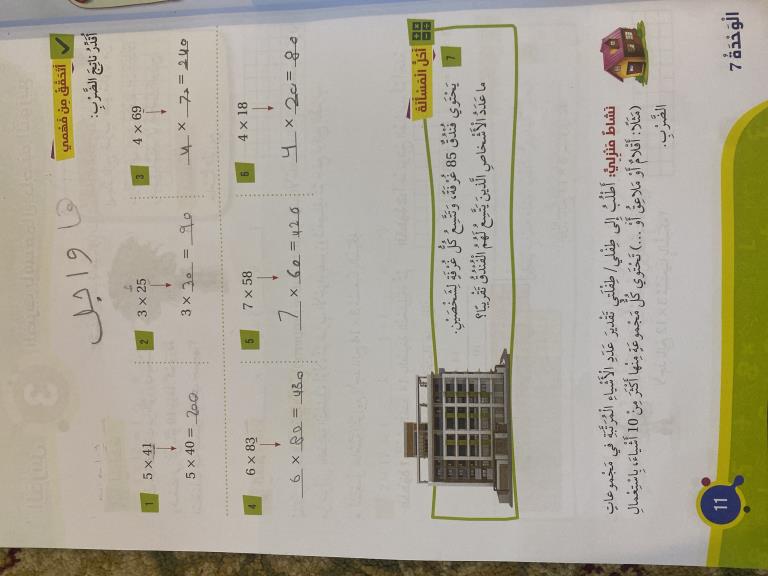 الْوَحْدَةُ 7
أَتَحَقَّقُ مِنْ فَهْمِي
أُقَدِّرُ نَاتِجَ الضَّرْبِ:
واجل
1 5 × 41
5 × 40 = 200
2 3 × 25
3 × 30 = 90
3 4 × 69
4 × 70 = 240
4 6 × 83
6 × 80 = 430
5 7 × 58
7 × 60 = 420
6 4 × 18
4 × 20 = 80
أَحُلُّ الْمَسْأَلَةَ
7 يَحْتَوِي فُنْدُقٌ 85 غُرْفَةً، وَتَتَّسِعُ كُلُّ غُرْفَةٍ لِشَخْصَيْنِ.
ما عَدَدُ الْأَشْخاصِ الَّذينَ يَتَّسِعُ لَهُمُ الْفُنْدُقُ تَقْريبًا؟
نَشاطٌ مَنْزِلِيٌّ: أَطْلُبُ إِلى طِفْلي/ طِفْلَتي تَقْديرَ عَدَدِ الْأَشْياءِ الْمُرَتَّبَةِ في مَجْموعاتٍ
(مَثَلًا: أَقْلامٌ أَوْ مَلاعِقُ أَوْ ...) تَحْتَوي كُلُّ مَجْموعَةٍ مِنْها أَكْثَرَ مِنْ 10 أَشْياءَ، بِاسْتِعْمالِ
الضَّرْبِ.
11